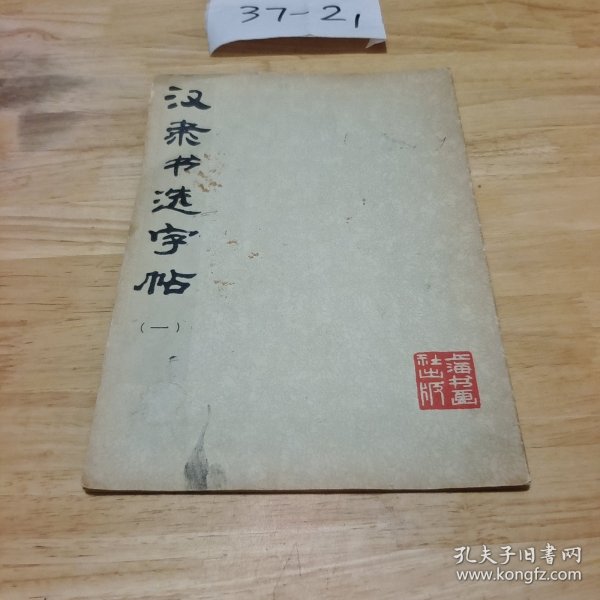 37-21
汉隶书选字帖
(一)
上海书画
出版社
孔夫子旧书网
www.kongfz.com